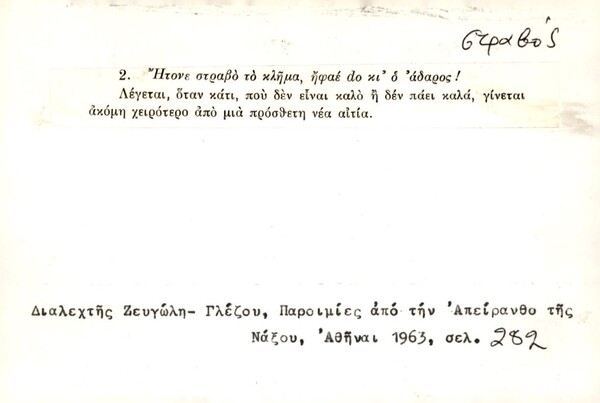 στραβός
2. Ἤτονε στραβὸ τὸ κλῆμα, ἤφαέ do κι' ὁ 'άδαρος!
Λέγεται, ὅταν κάτι, ποὺ δὲν εἶναι καλὸ ἢ δέν πάει καλά, γίνεται
ἀκόμη χειρότερο ἀπὸ μιὰ πρόσθετη νέα αἰτία.
Διαλεχτῆς Ζευγώλη- Γλέζου, Παροιμίες ἀπό τήν Ἀπείρανθο τῆς
Νάξου, Ἀθῆναι 1963, σελ. 282